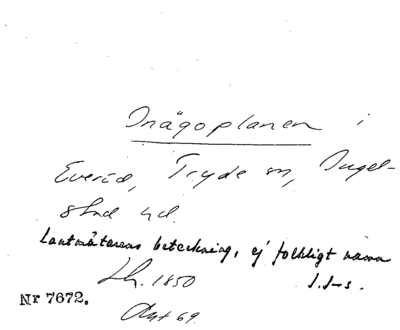 Inägoplanen i
Everöd, Tryde sn, Ingel-
stad hd.
Lantmätarens beteckning, ej folkligt namn
Lh. 1850 J.J-s.
Nr 7672.
Akt 69.